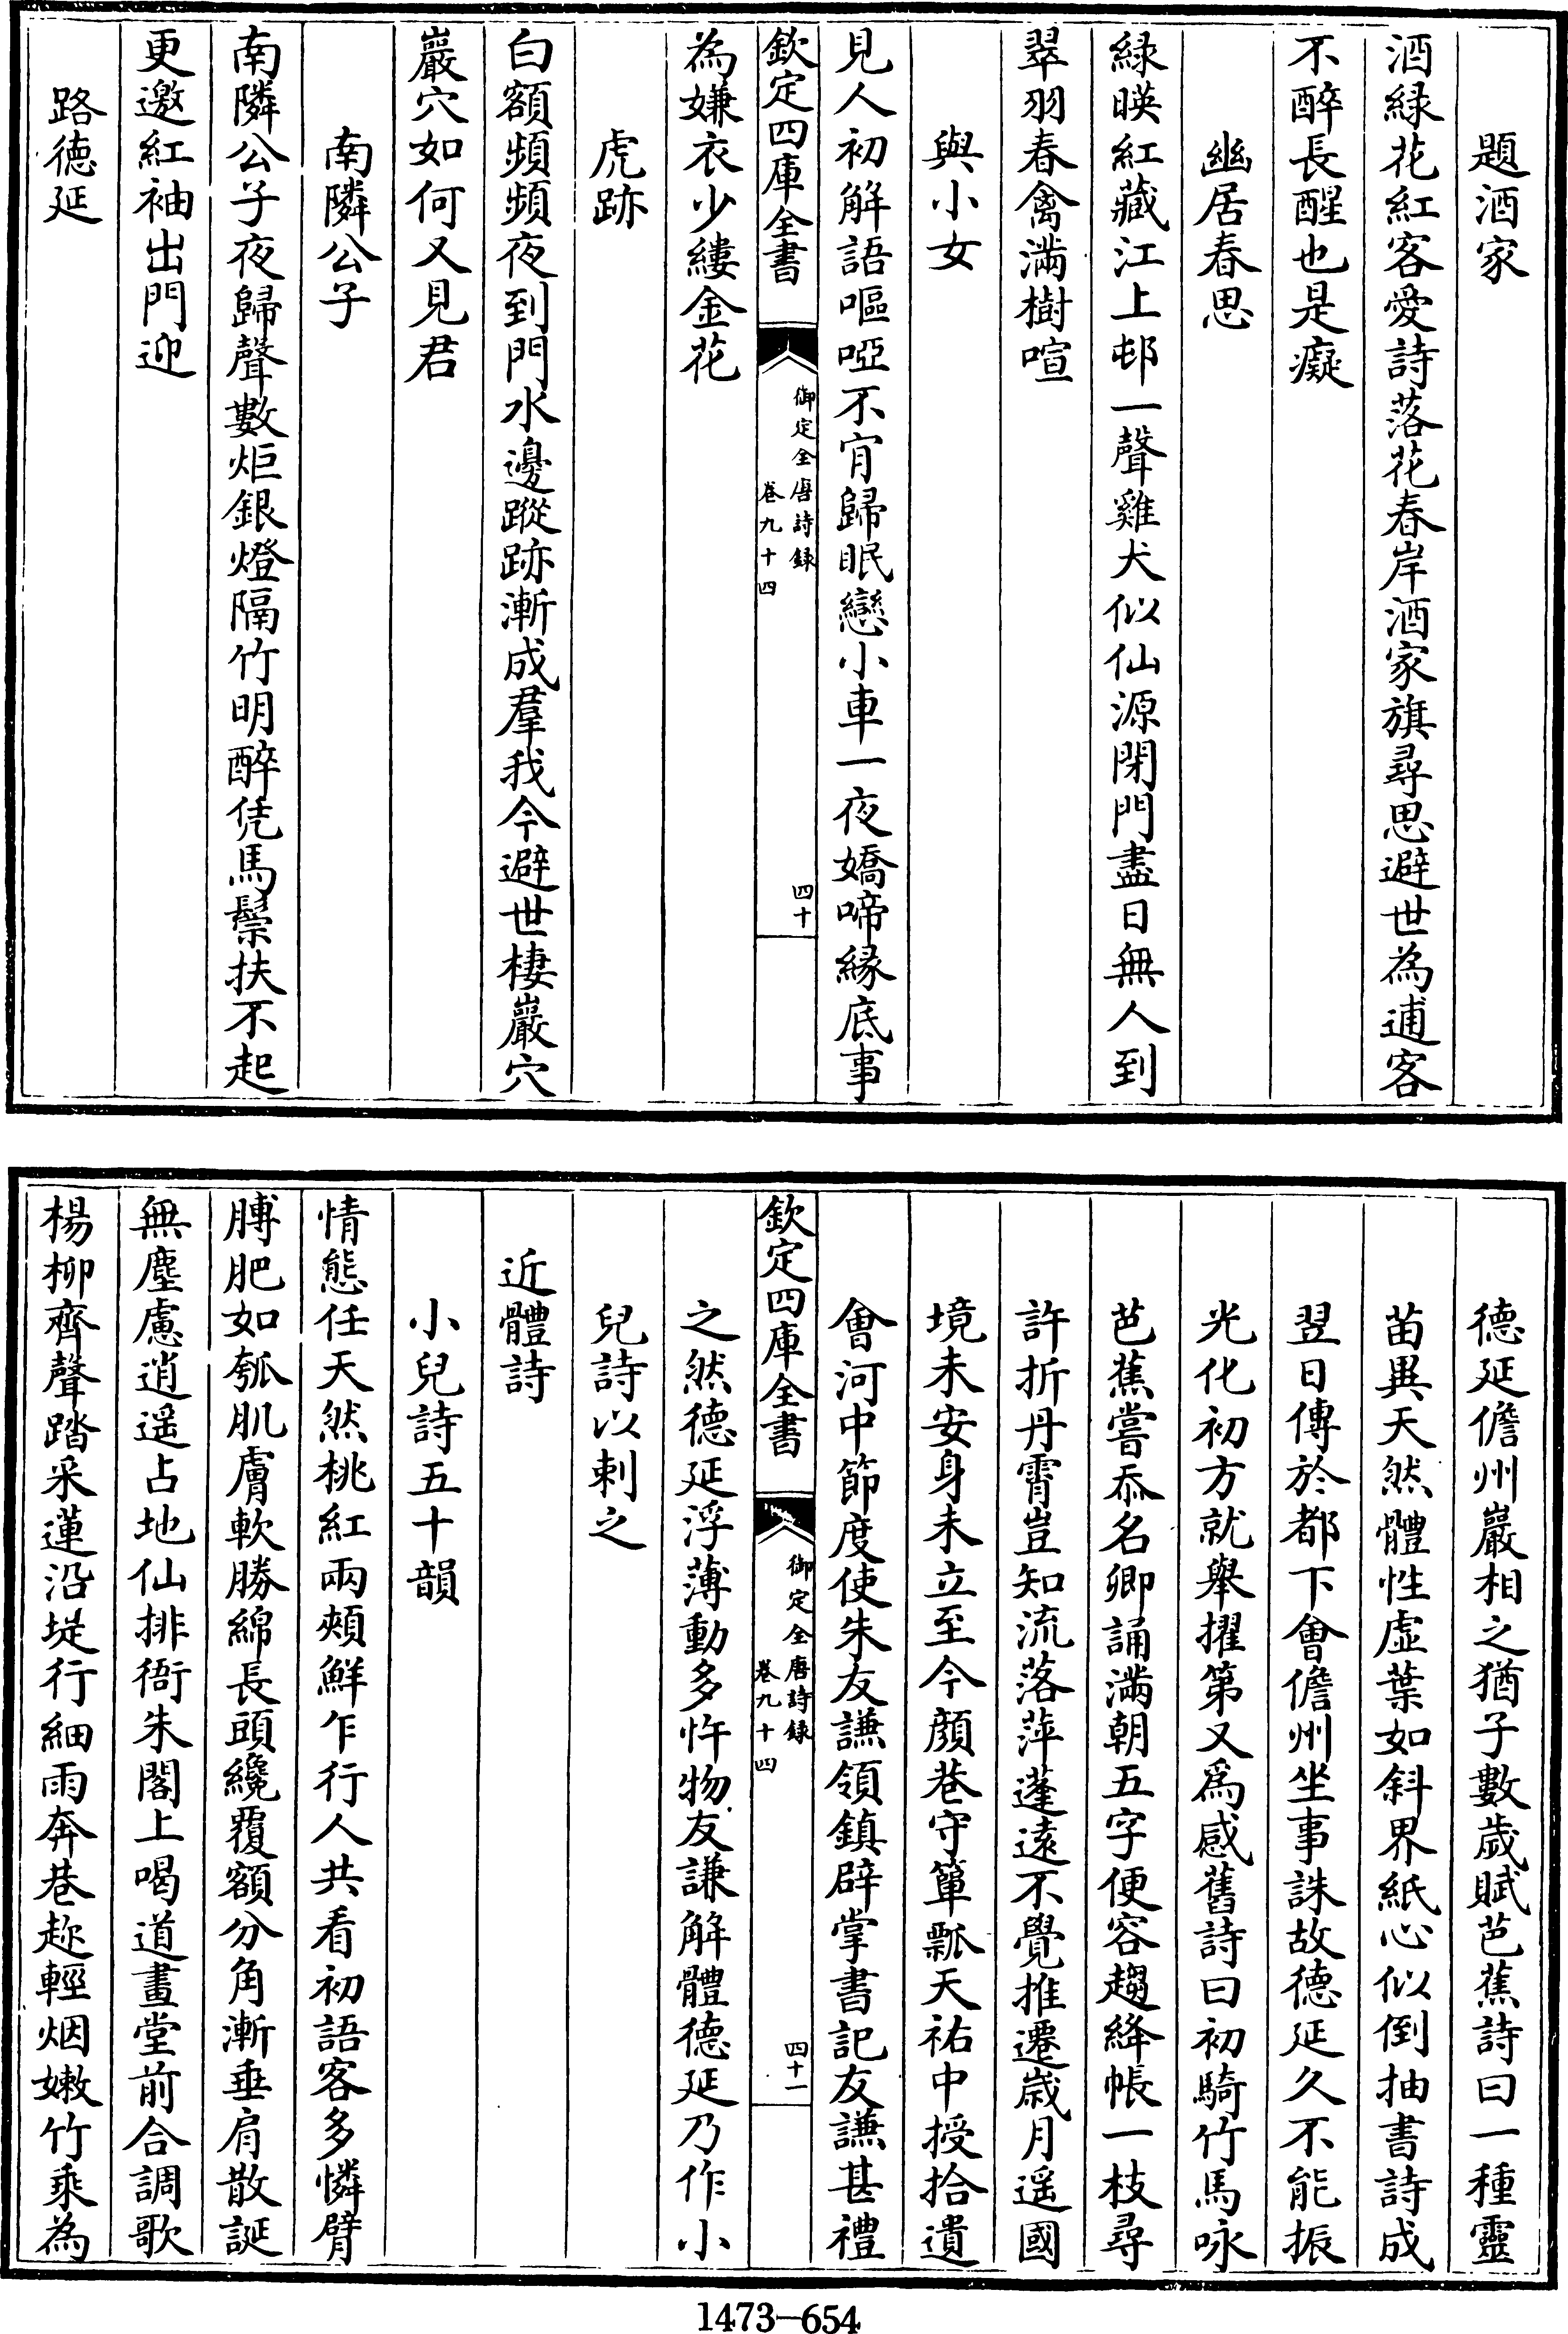 題酒家
酒緑花紅客愛詩落花春岸酒家旗尋思避世為逋客
不醉長醒也是癡
幽居春思
緑暎紅藏江上邨一聲雞犬似仙源閉門盡日無人到
翠羽春禽滿樹喧
與小女
見人初解語嘔啞不肎歸眠戀小車一夜嬌啼緣底事
欽定四庫全書
御定全唐詩録
卷九十四
四十
為嫌衣少縷金花
虎跡
白額頻頻夜到門水邊蹤跡漸成羣我今避世棲巖穴
巖穴如何又見君
南隣公子
南隣公子夜歸聲數炬銀燈隔竹明醉凭馬鬃扶不起
更邀紅袖出門迎
路德延
德延儋州巖相之猶子數歲賦芭蕉詩曰一種靈
苗異天然體性虛葉如斜界紙心似倒抽書詩成
翌日傳於都下會儋州坐事誅故德延久不能振
光化初方就舉擢第又為感舊詩曰初騎竹馬咏
芭蕉嘗忝名卿誦滿朝五字便容趨絳帳一枝尋
許折丹霄豈知流落萍蓬遠不覺推遷歲月遥國
境未安身未立至今顔巷守簞瓢天祐中授拾遺
會河中節度使朱友謙領鎮辟掌書記友謙甚禮
欽定四庫全書
御定全唐詩録
卷九十四
四十一
之然德延浮薄動多忤物友謙解體德延乃作小
兒詩以刺之
近體詩
小兒詩五十韻
情態任天然桃紅兩頰鮮乍行人共看初語客多憐臂
膊肥如瓠肌膚軟勝綿長頭纔覆額分角漸垂肩散誕
無塵慮逍遥占地仙排衙朱閣上喝道畫堂前合調歌
楊柳齊聲踏采蓮沿堤行細雨奔巷趂輕烟嫩竹乘為
1473-654